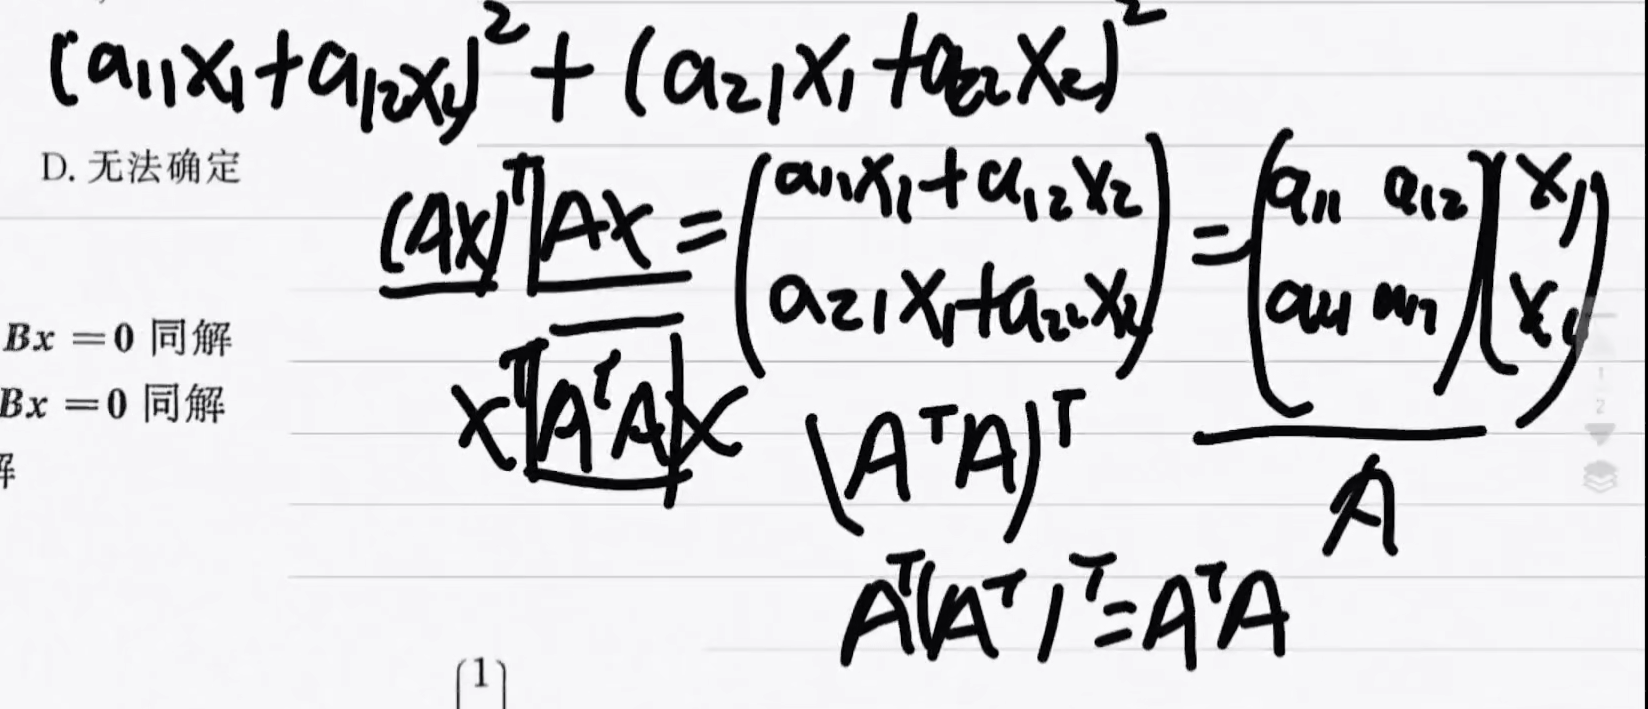 (a₁₁x₁+a₁₂x₂)²+(a₂₁x₁+a₂₂x₂)²
D. 无法确定
(Ax)ᵀAx=(a₁₁x₁+a₁₂x₂ a₂₁x₁+a₂₂x₂)=(a₁₁ a₁₂)(x₁
Bx=0 同解
Bx=0 同解
xᵀAᵀAx
(AᵀA)ᵀ
A
Aᵀ(Aᵀ)ᵀ=AᵀA
1
2
(1)